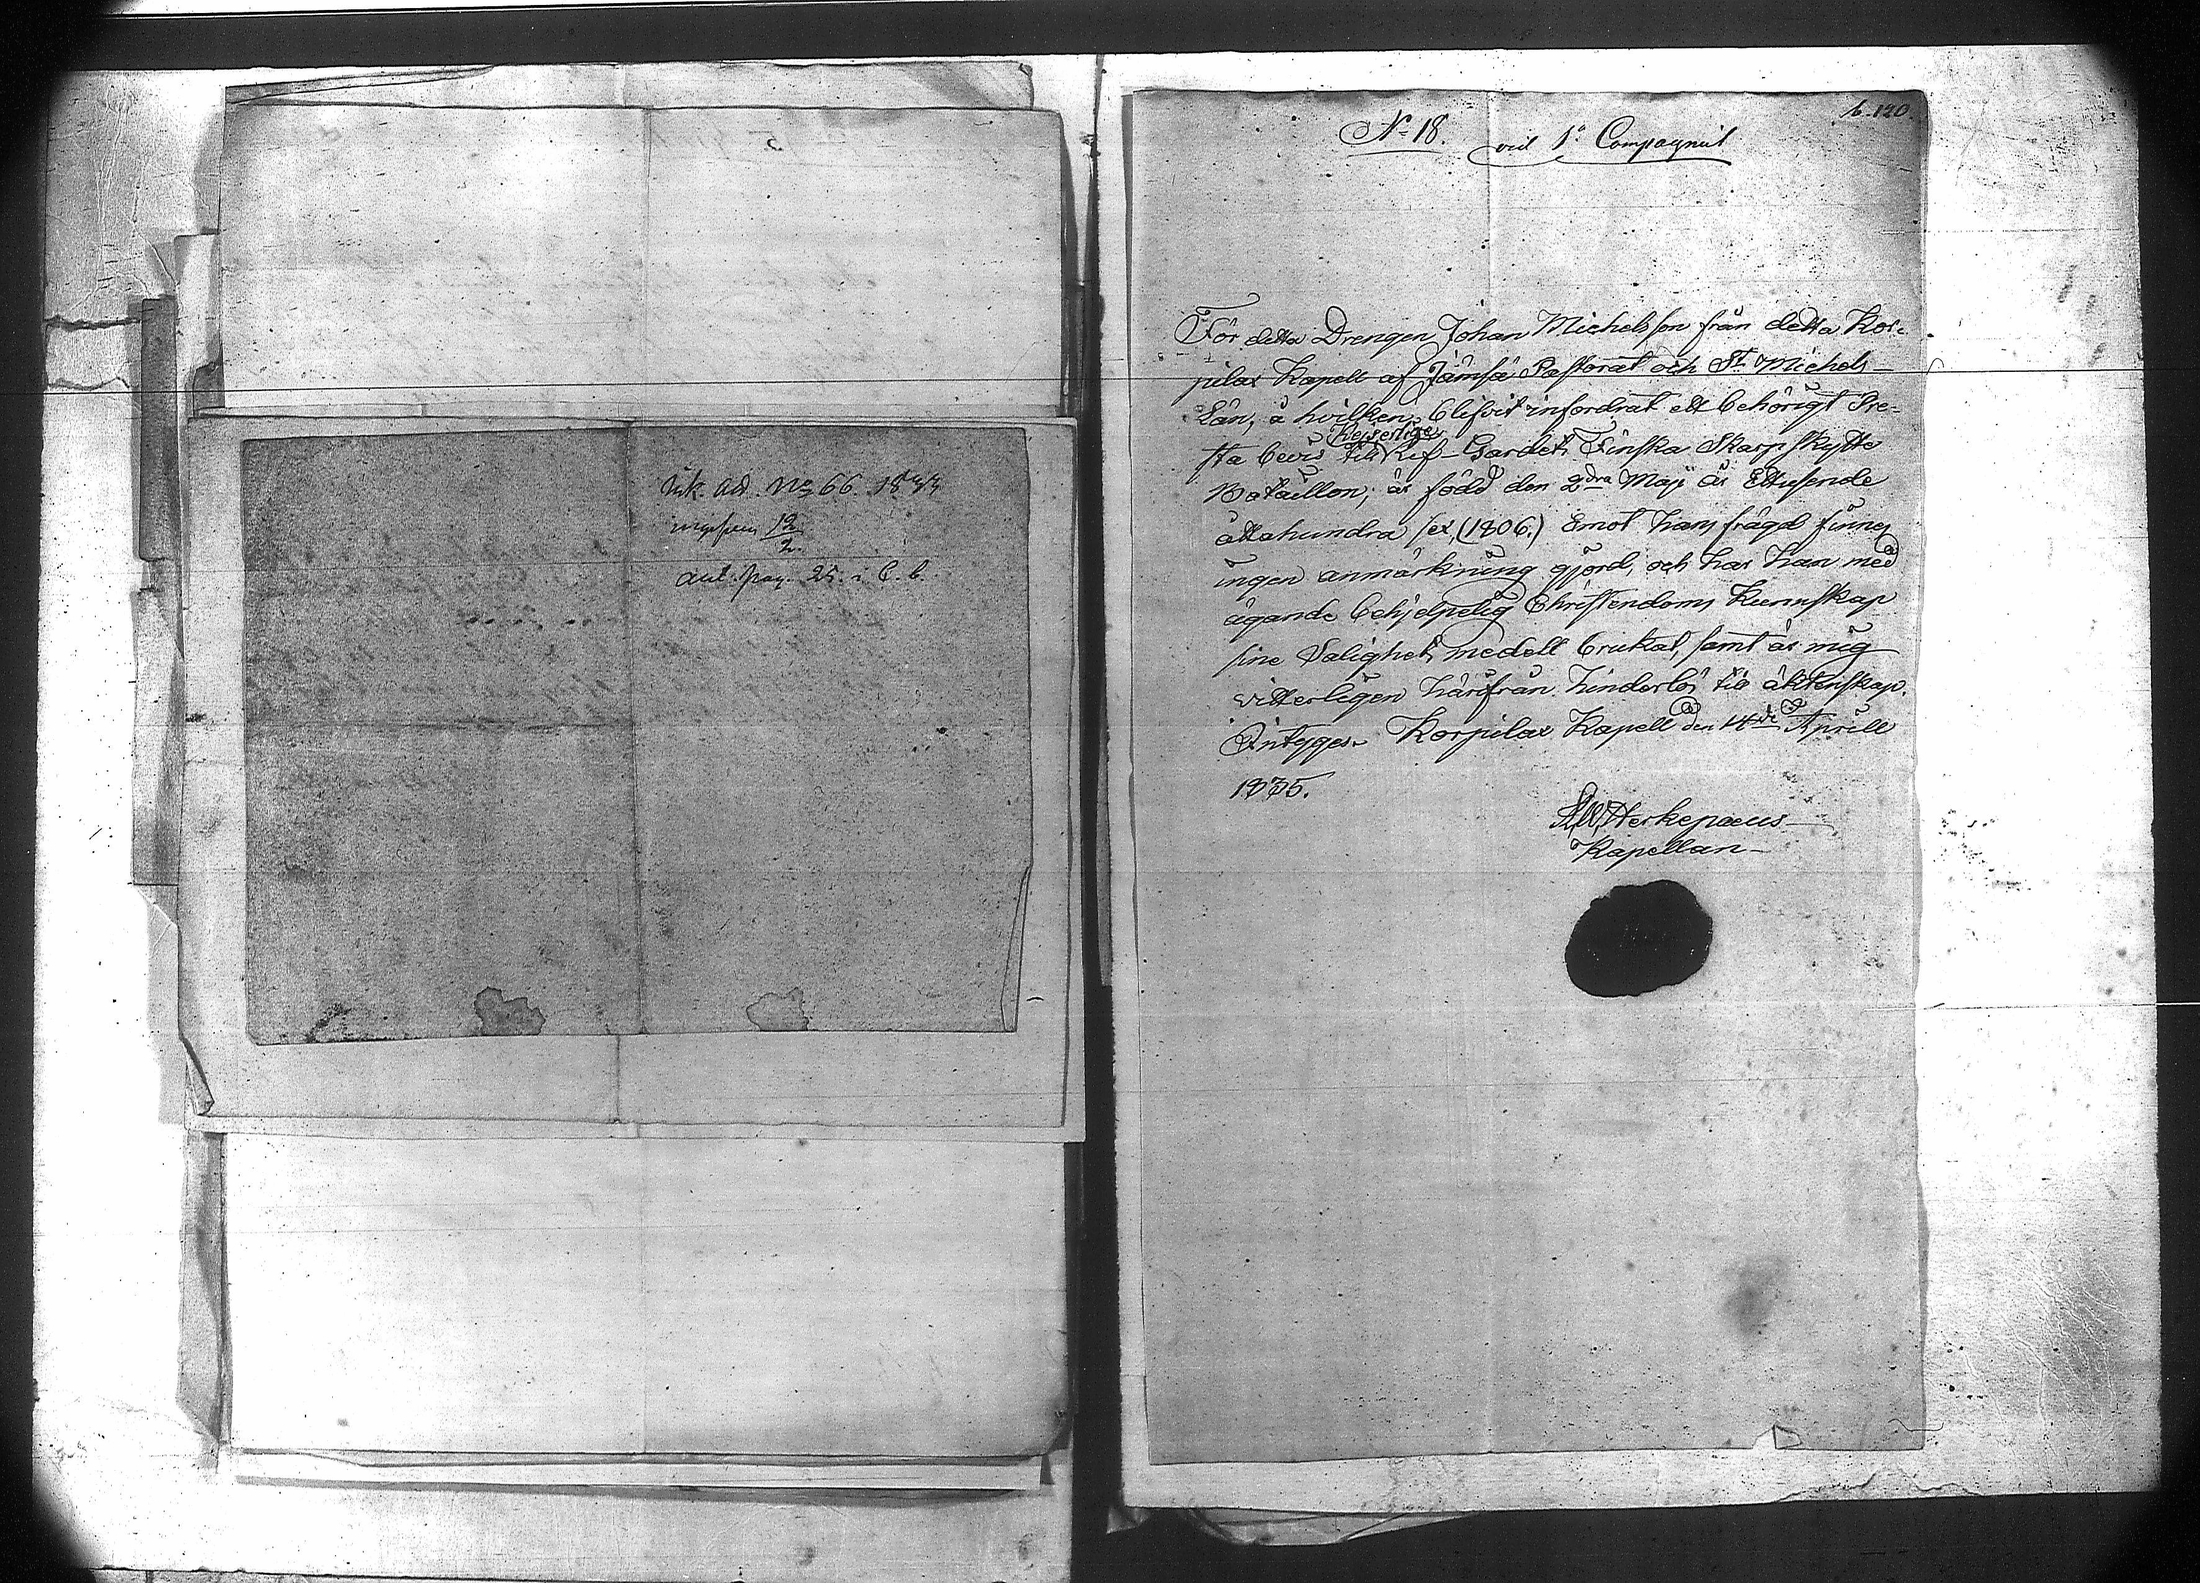 Ink. ad. No 66. 1833
12/2.
ant. pag. 25. i C. b.
b. 120.
No 18. vid 1a Compagniet
För detta Drengen Johan Michelsson från detta Kor-
pilax Kapell af Jämsä Pastorat och St Michels
Län, å hvilken blifvit infordrat ett behörigt Pre-
sta bevis till Kejserlige Gardets Finska Skarpskytte
Bataillon, är född den 2dra Maji år Ettusende
åttahundra sex, (1806.) Emot hans frägd finnes
ingen anmärkning gjord, och har han med
ägande behjelpelig Christendoms Kunnskap
sine Salighets medell brukat, samt är mig
vitterligen härifrån hinderlös till äktenskap.
Intyges. Korpilax Kapell den 14de Aprill
1835.
Herkepæus
Kapellan